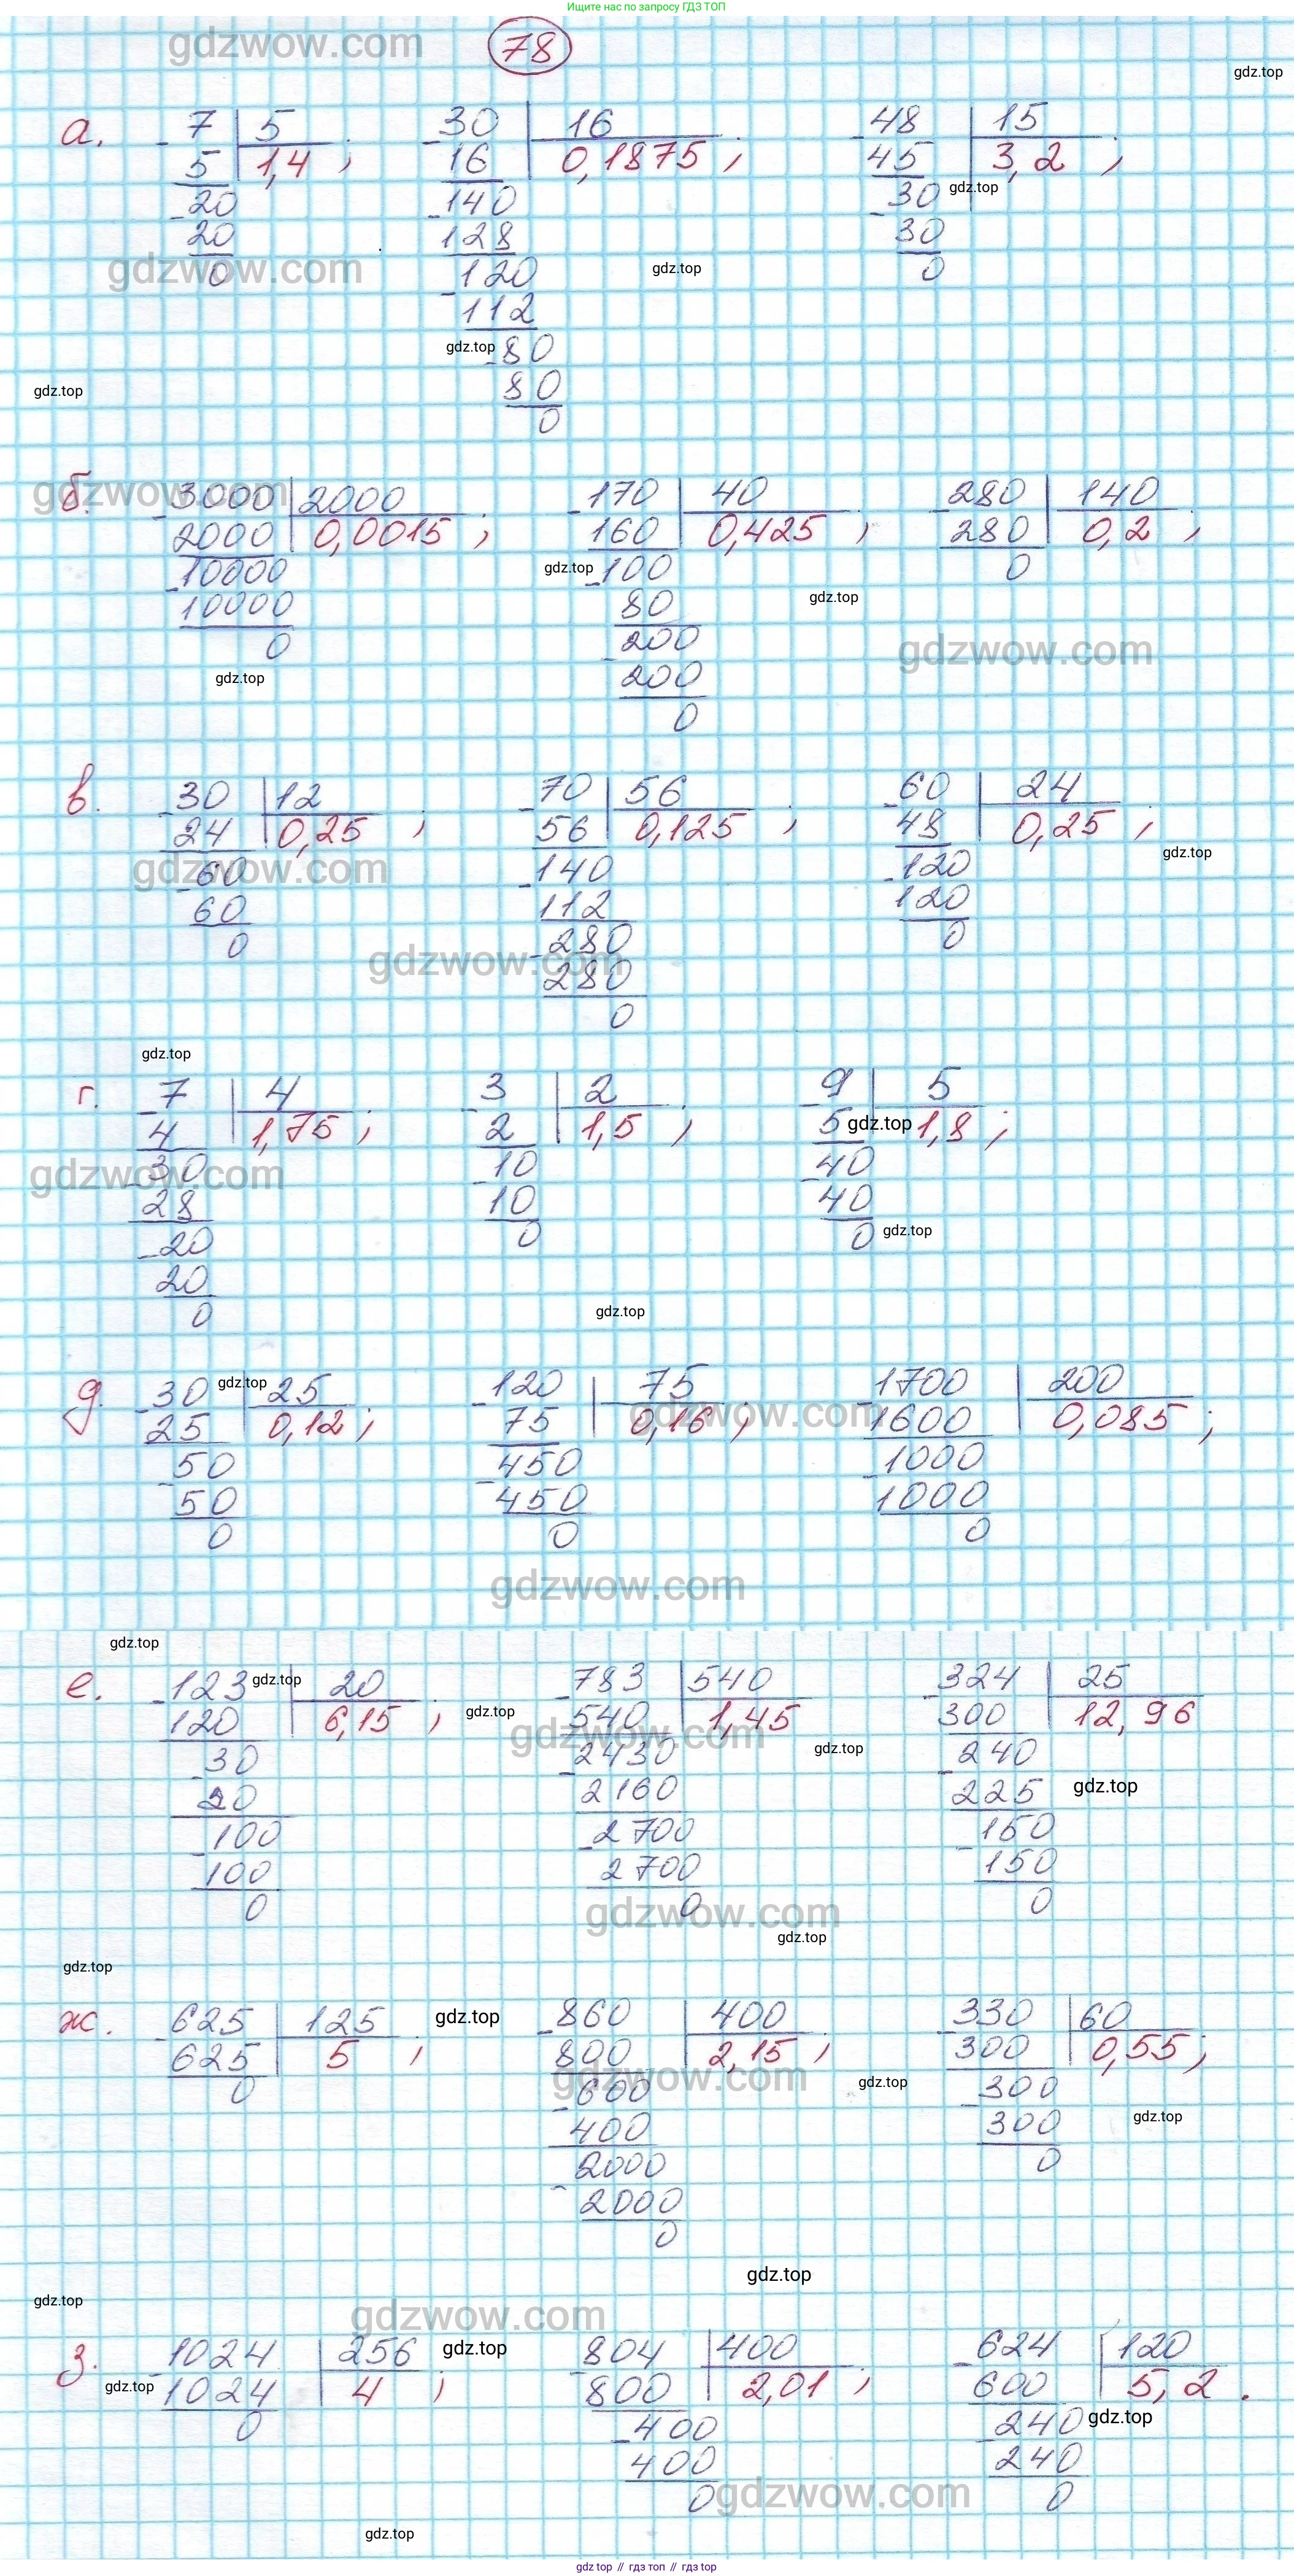 Ищите нас по запросу ГДЗ ТОП
gdzwow.com
78
gdz.top
а. - 7 | 5
5 | 1,4 ;
- 20
20
0
- 30 | 16
16 | 0,1875 ;
- 140
128
- 120
112
- 80
80
0
- 48 | 15
45 | 3,2 ;
- 30
30
0
gdz.top
gdzwow.com
gdz.top
gdz.top
gdz.top
gdzwow.com
б. - 3000 | 2000
2000 | 0,0015 ;
- 10000
10000
0
- 170 | 40
160 | 0,425 ;
- 100
80
- 200
200
0
- 280 | 140
280 | 0,2 ;
0
gdz.top
gdz.top
gdzwow.com
gdz.top
в. - 30 | 12
24 | 0,25 ;
- 60
60
0
- 70 | 56
56 | 0,125 ;
- 140
112
- 280
280
0
- 60 | 24
48 | 0,25 ;
- 120
120
0
gdz.top
gdzwow.com
gdzwow.com
gdz.top
г. - 7 | 4
4 | 1,75 ;
- 30
28
- 20
20
0
- 3 | 2
2 | 1,5 ;
- 10
10
0
- 9 | 5
5 | 1,8 ;
- 40
40
0
gdz.top
gdzwow.com
gdz.top
gdz.top
д. - 30 | 25
25 | 0,12 ;
- 50
50
0
- 120 | 75
75 | 0,16 ;
- 450
450
0
- 1700 | 200
1600 | 0,085 ;
- 1000
1000
0
gdz.top
gdzwow.com
gdzwow.com
gdz.top
е. - 123 | 20
120 | 6,15 ;
- 30
20
- 100
100
0
- 783 | 540
540 | 1,45
- 2430
2160
- 2700
2700
0
- 324 | 25
300 | 12,96
- 240
225
- 150
150
0
gdz.top
gdz.top
gdzwow.com
gdz.top
gdz.top
gdzwow.com
gdz.top
gdz.top
ж. - 625 | 125
625 | 5 ;
0
- 860 | 400
800 | 2,15 ;
- 600
400
- 2000
2000
0
- 330 | 60
300 | 0,55 ;
- 300
300
0
gdz.top
gdzwow.com
gdz.top
gdz.top
gdz.top
gdz.top
gdzwow.com
з. - 1024 | 256
1024 | 4 ;
0
- 804 | 400
800 | 2,01 ;
- 400
400
0
- 624 | 120
600 | 5,2 .
- 240
240
0
gdz.top
gdz.top
gdz.top
gdzwow.com
gdz.top
gdz top // гдз топ // gdz top